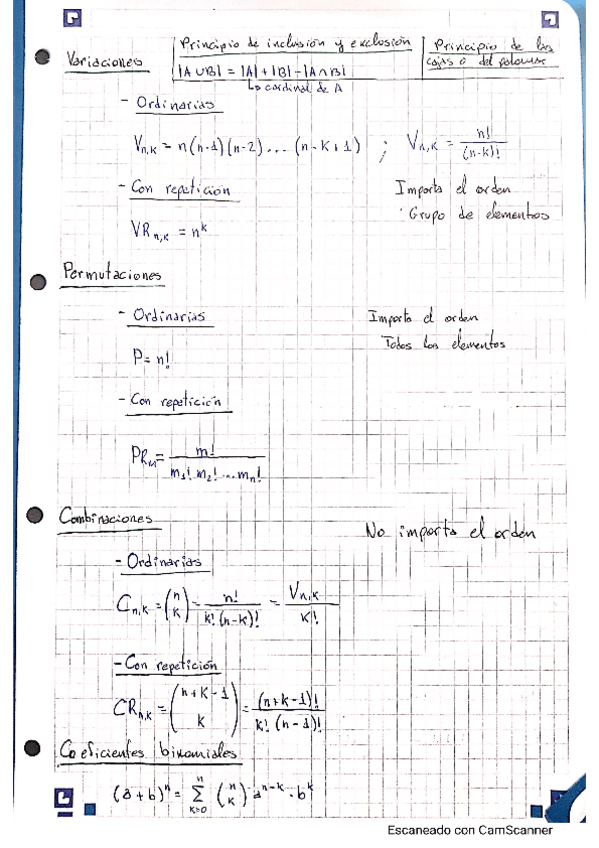 Variaciones
Principio de inclusión y exclusión
|A∪B| = |A|+|B|-|A∩B|
↳ cardinal de A
Principio de las
cajas o del palomar
- Ordinarias
V_{n,k} = n(n-1)(n-2)... (n-k+1) ; V_{n,k} = n!/(n-k)!
- Con repetición
Importa el orden
Grupo de elementos
VR_{n,k} = n^k
Permutaciones
- Ordinarias
Importa el orden
Todos los elementos
P = n!
- Con repetición
PR_m = m!/(m_1! m_2! ... m_n!)
Combinaciones
No importa el orden
- Ordinarias
C_{n,k} = (n k) = n!/(k! (n-k)!) = V_{n,k}/k!
- Con repetición
CR_{n,k} = (n+k-1 k) = (n+k-1)!/(k! (n-1)!)
Coeficientes binomiales
(a+b)^n = Σ_{k=0}^{n} (n k) · a^{n-k} · b^k
Escaneado con CamScanner